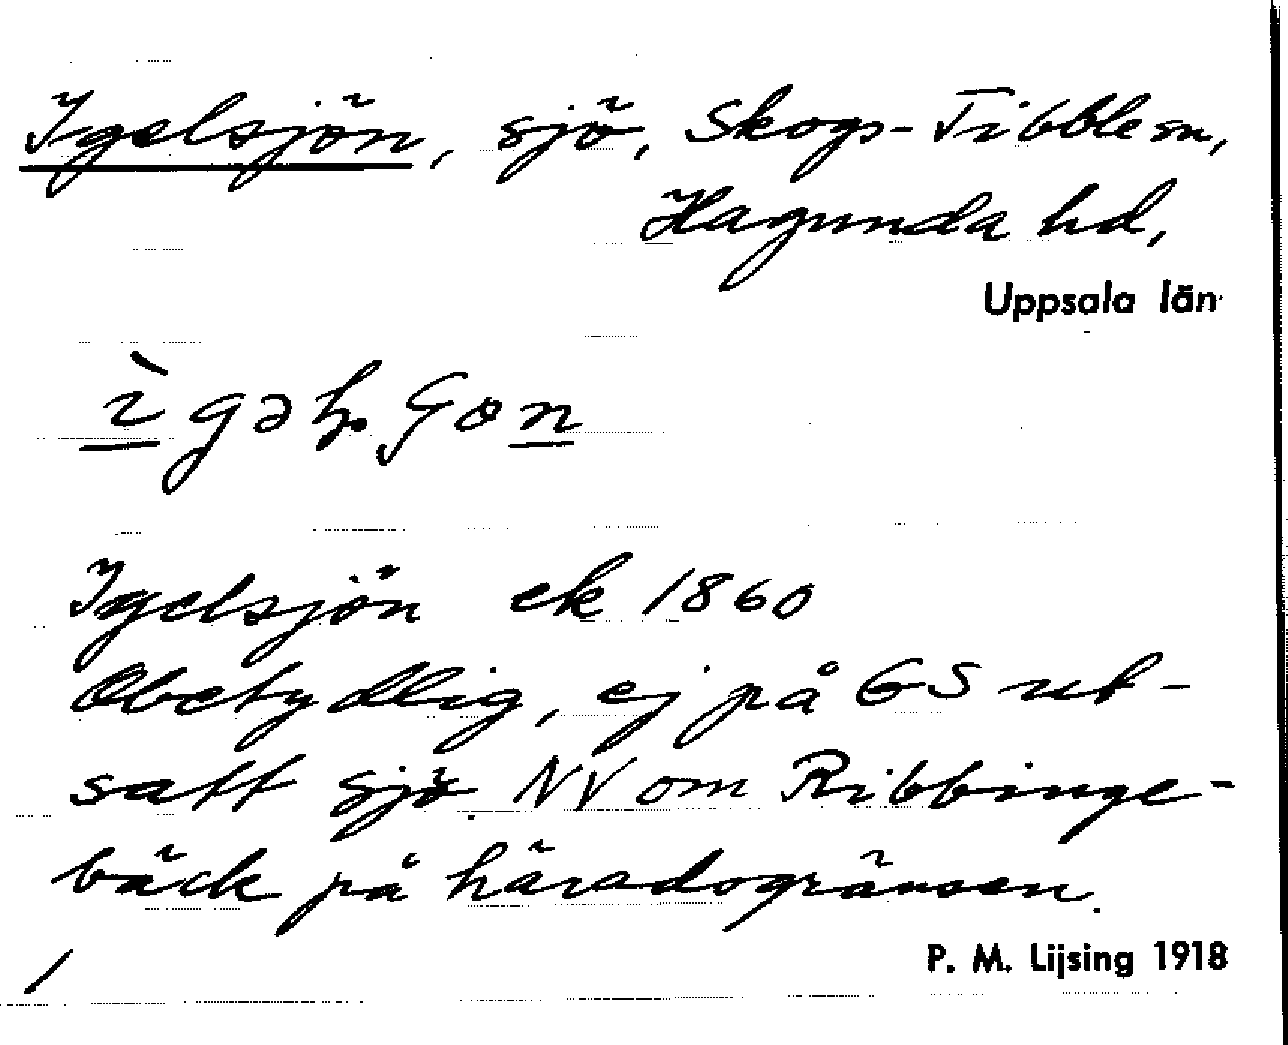 Igelsjön, sjö, Skogs-Tibble sn,
Hagunda hd,
Uppsala län
Igelsjön ek 1860
Obetydlig, ej på GS ut-
satt sjö NV om Ribbinge-
bäck på häradsgränsen.
P. M. Lijsing 1918